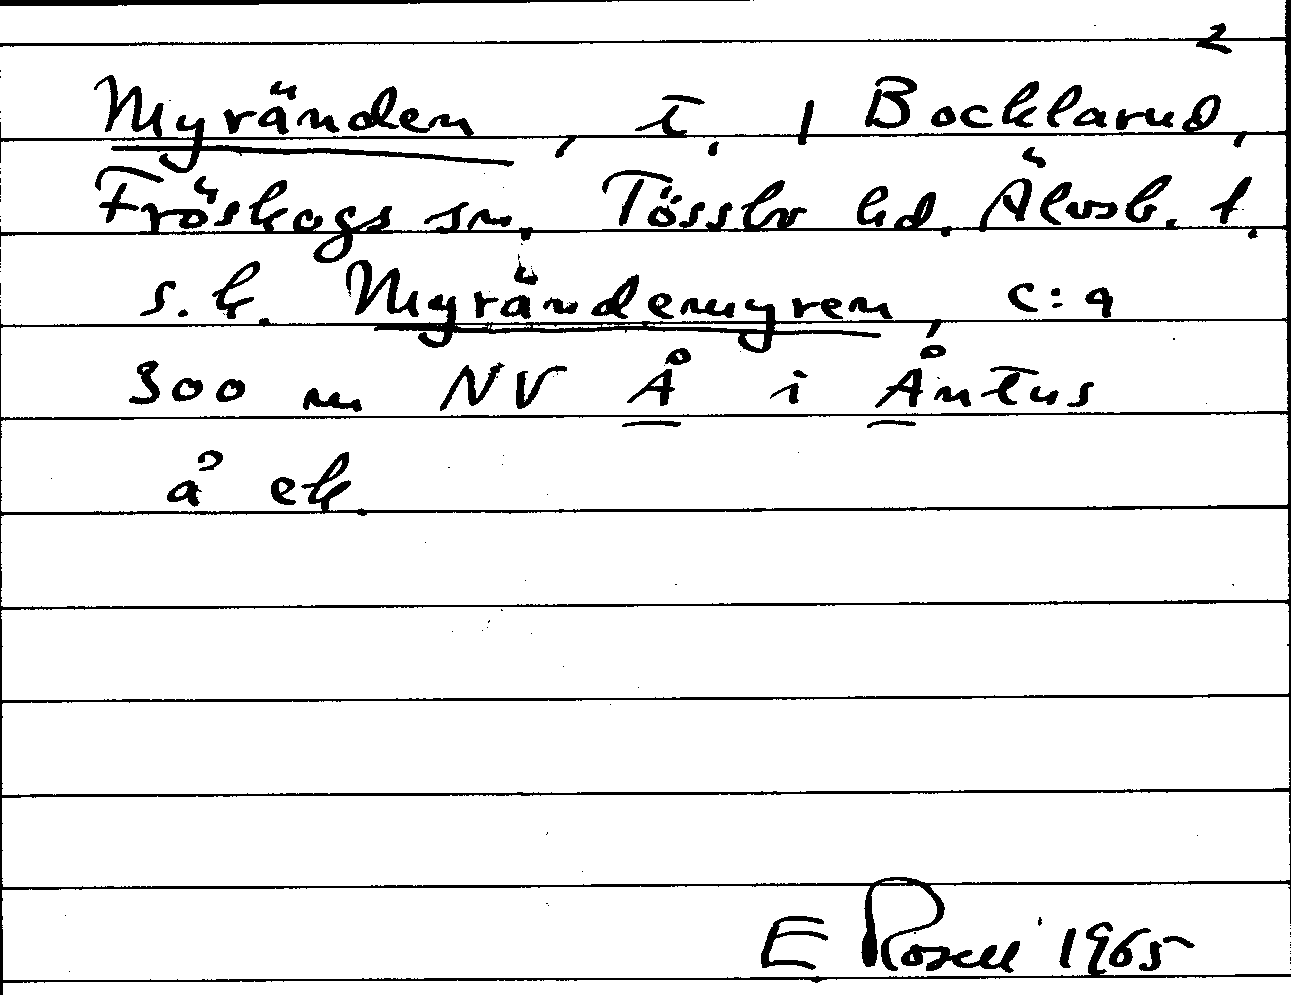 2
Myränden, t. 1 Bocklarud,
Fröskogs sn, Tössbo hd. Älvsb. l.
s.k. Myrändemyren, c:a
300 m NV Å i Åntus
å ek.
E Rosell 1965